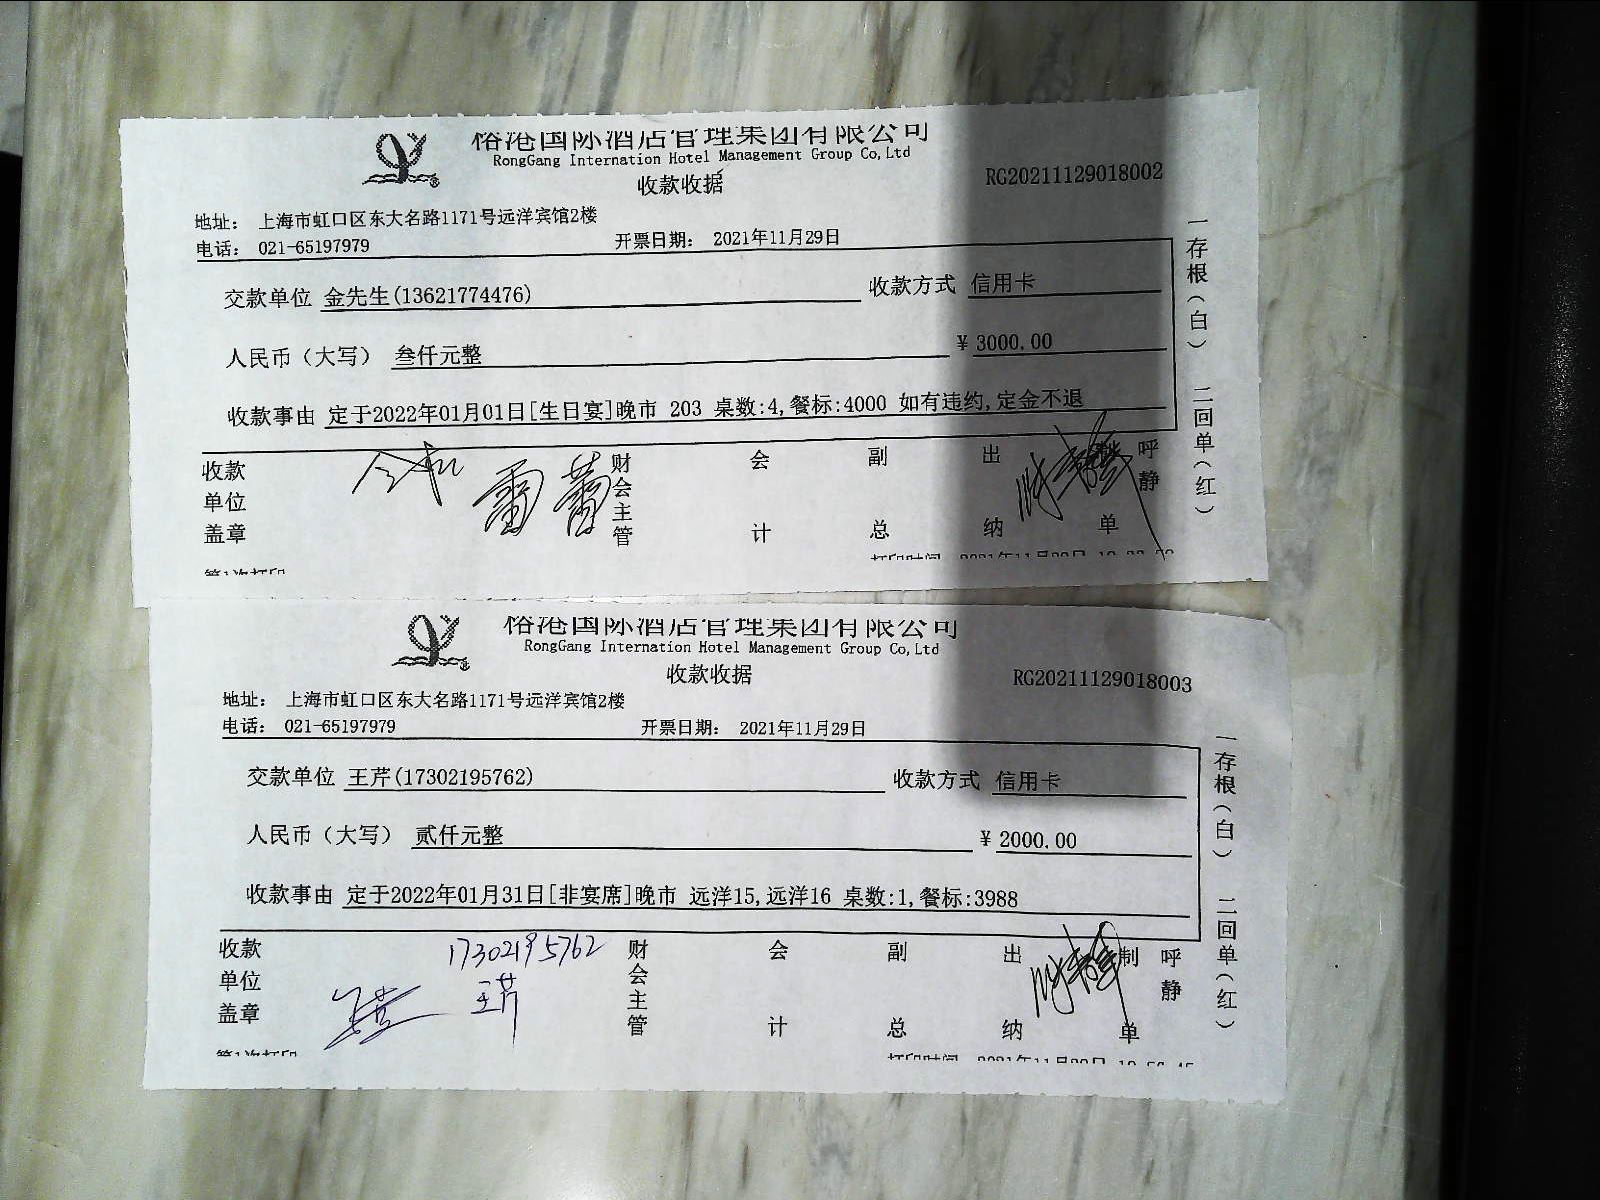 榕港国际酒店管理集团有限公司
RongGang Internation Hotel Management Group Co,Ltd
收款收据
RG20211129018002
地址： 上海市虹口区东大名路1171号远洋宾馆2楼
电话： 021-65197979 开票日期： 2021年11月29日
交款单位 金先生(13621774476) 收款方式 信用卡
人民币（大写） 叁仟元整 ¥ 3000.00
收款事由 定于2022年01月01日[生日宴]晚市 203 桌数:4,餐标:4000 如有违约,定金不退
收款单位盖章 财会主管 会计 副总 出纳 制单 呼静
一存根（白） 二回单（红）
第1次打印
榕港国际酒店管理集团有限公司
RongGang Internation Hotel Management Group Co,Ltd
收款收据
RG20211129018003
地址： 上海市虹口区东大名路1171号远洋宾馆2楼
电话： 021-65197979 开票日期： 2021年11月29日
交款单位 王芹(17302195762) 收款方式 信用卡
人民币（大写） 贰仟元整 ¥ 2000.00
收款事由 定于2022年01月31日[非宴席]晚市 远洋15,远洋16 桌数:1,餐标:3988
收款单位盖章 17302195762 王芹 财会主管 会计 副总 出纳 制单 呼静
一存根（白） 二回单（红）
第1次打印